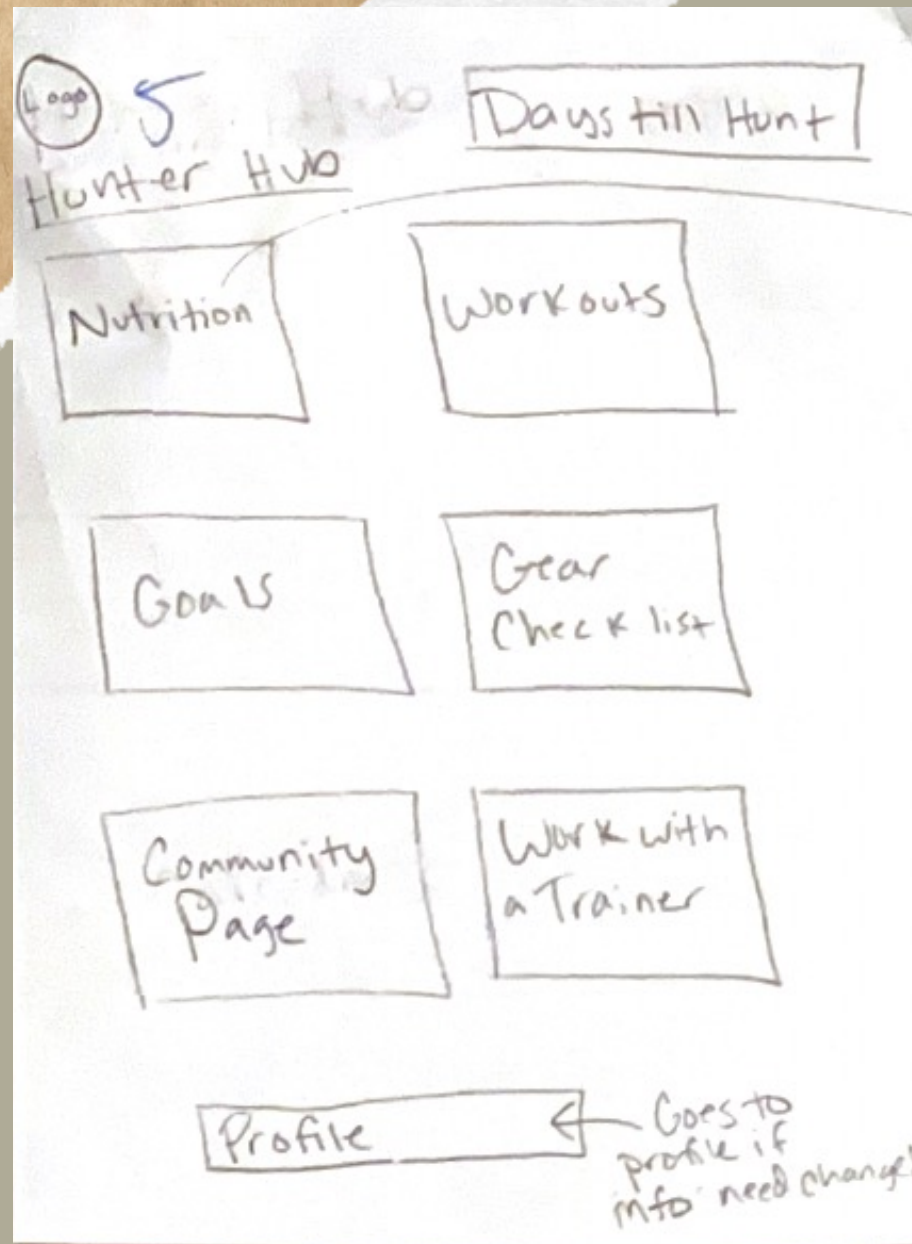 Logo
5
Hub
Days till Hunt
Hunter Hub
Nutrition
Workouts
Goals
Gear
Check list
Community
Page
Work with
a Trainer
Profile
Goes to
profile if
info need change